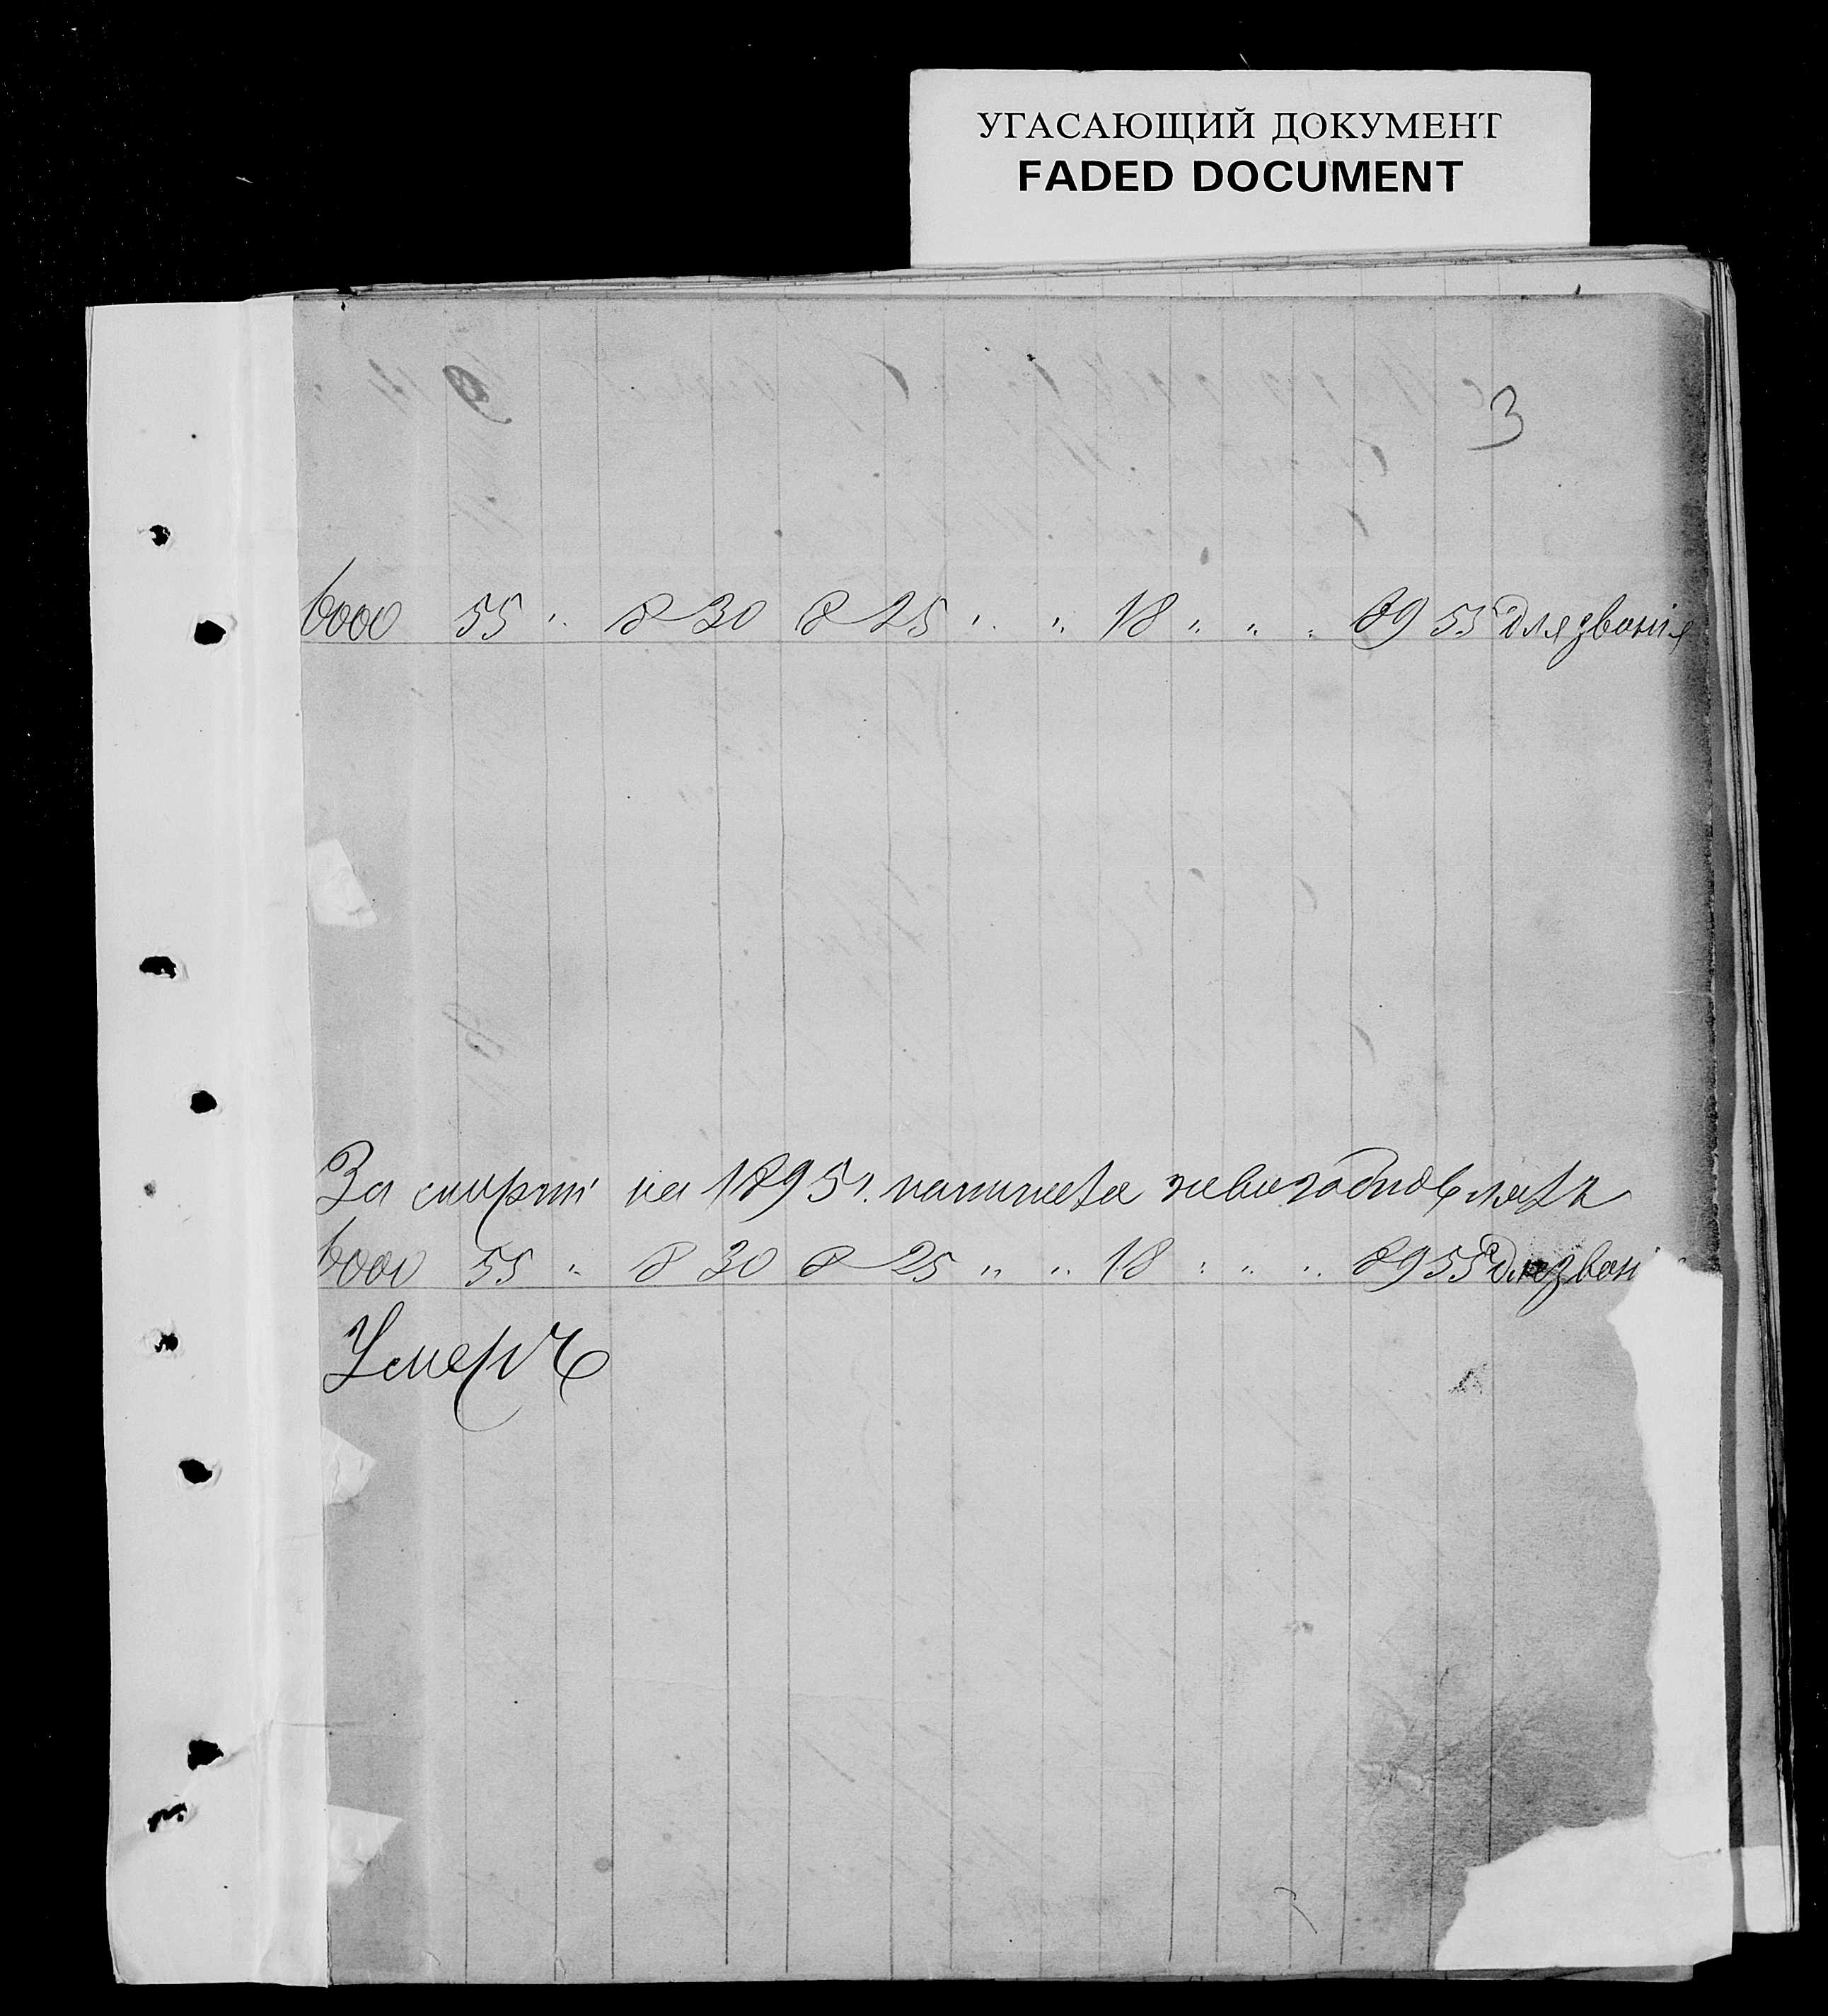 УГАСАЮЩИЙ ДОКУМЕНТ
FADED DOCUMENT
3
6000 55 " 8 30 8 25 " " 18 " " " 89 55 для званія
За смертi на 1895 г.
6000 55 " 8 30 8 25 " " 18 " " " 89 55 для звані
Умеръ